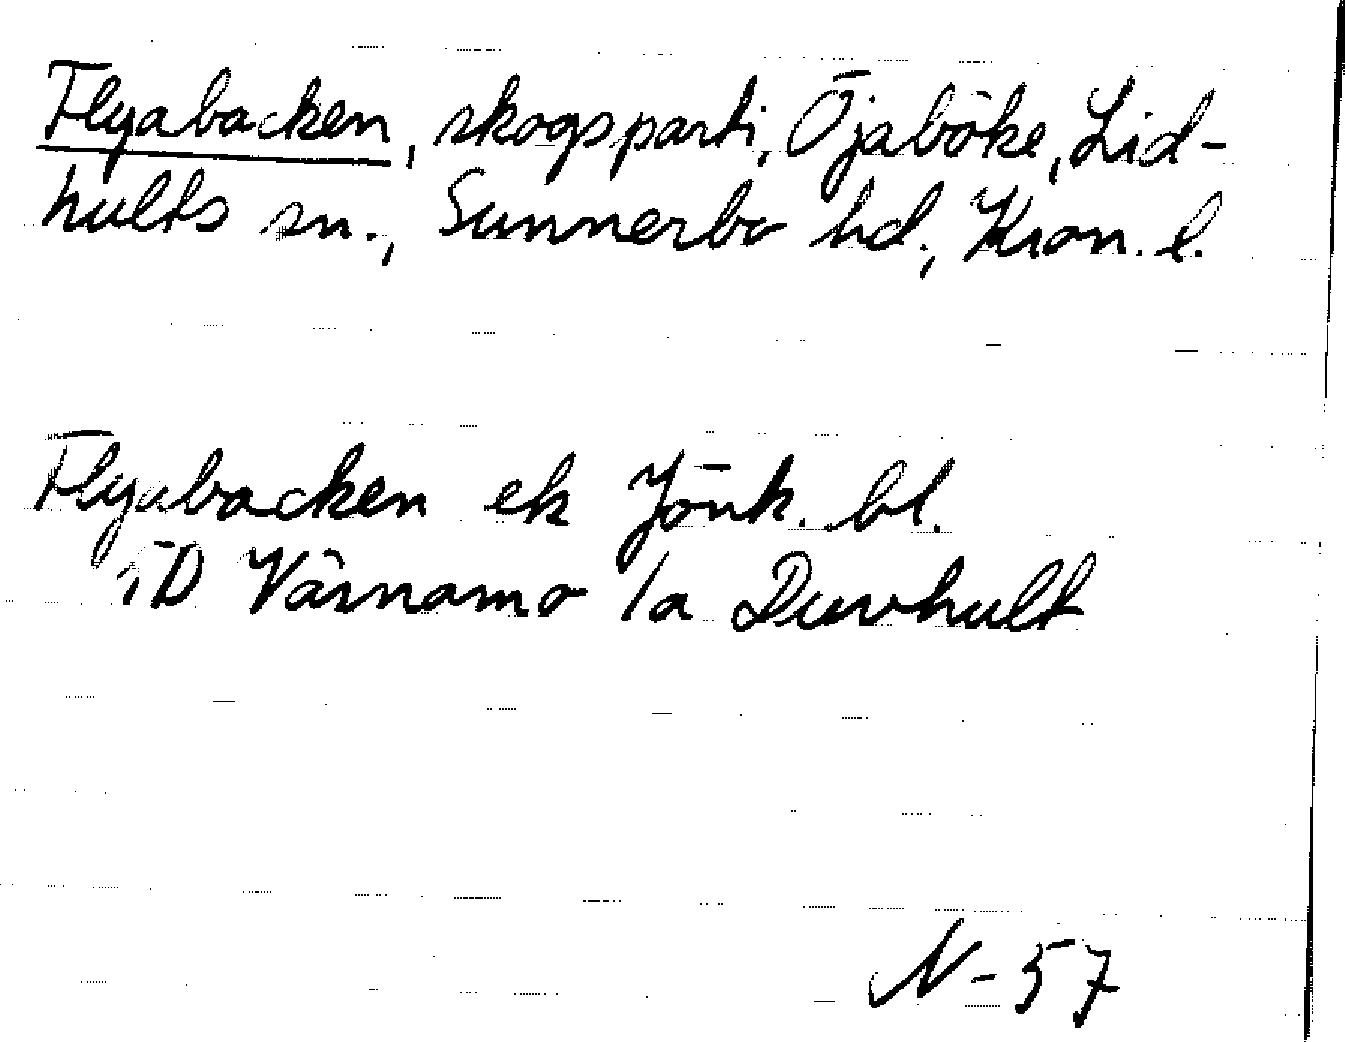 Flyabacken, skogsparti, Öjaböke, Lid-
hults sn., Sunnerbo hd., Kron. l.
Flyabacken ek Jönk. bl.
5D Värnamo 1a Duvhult
N-57